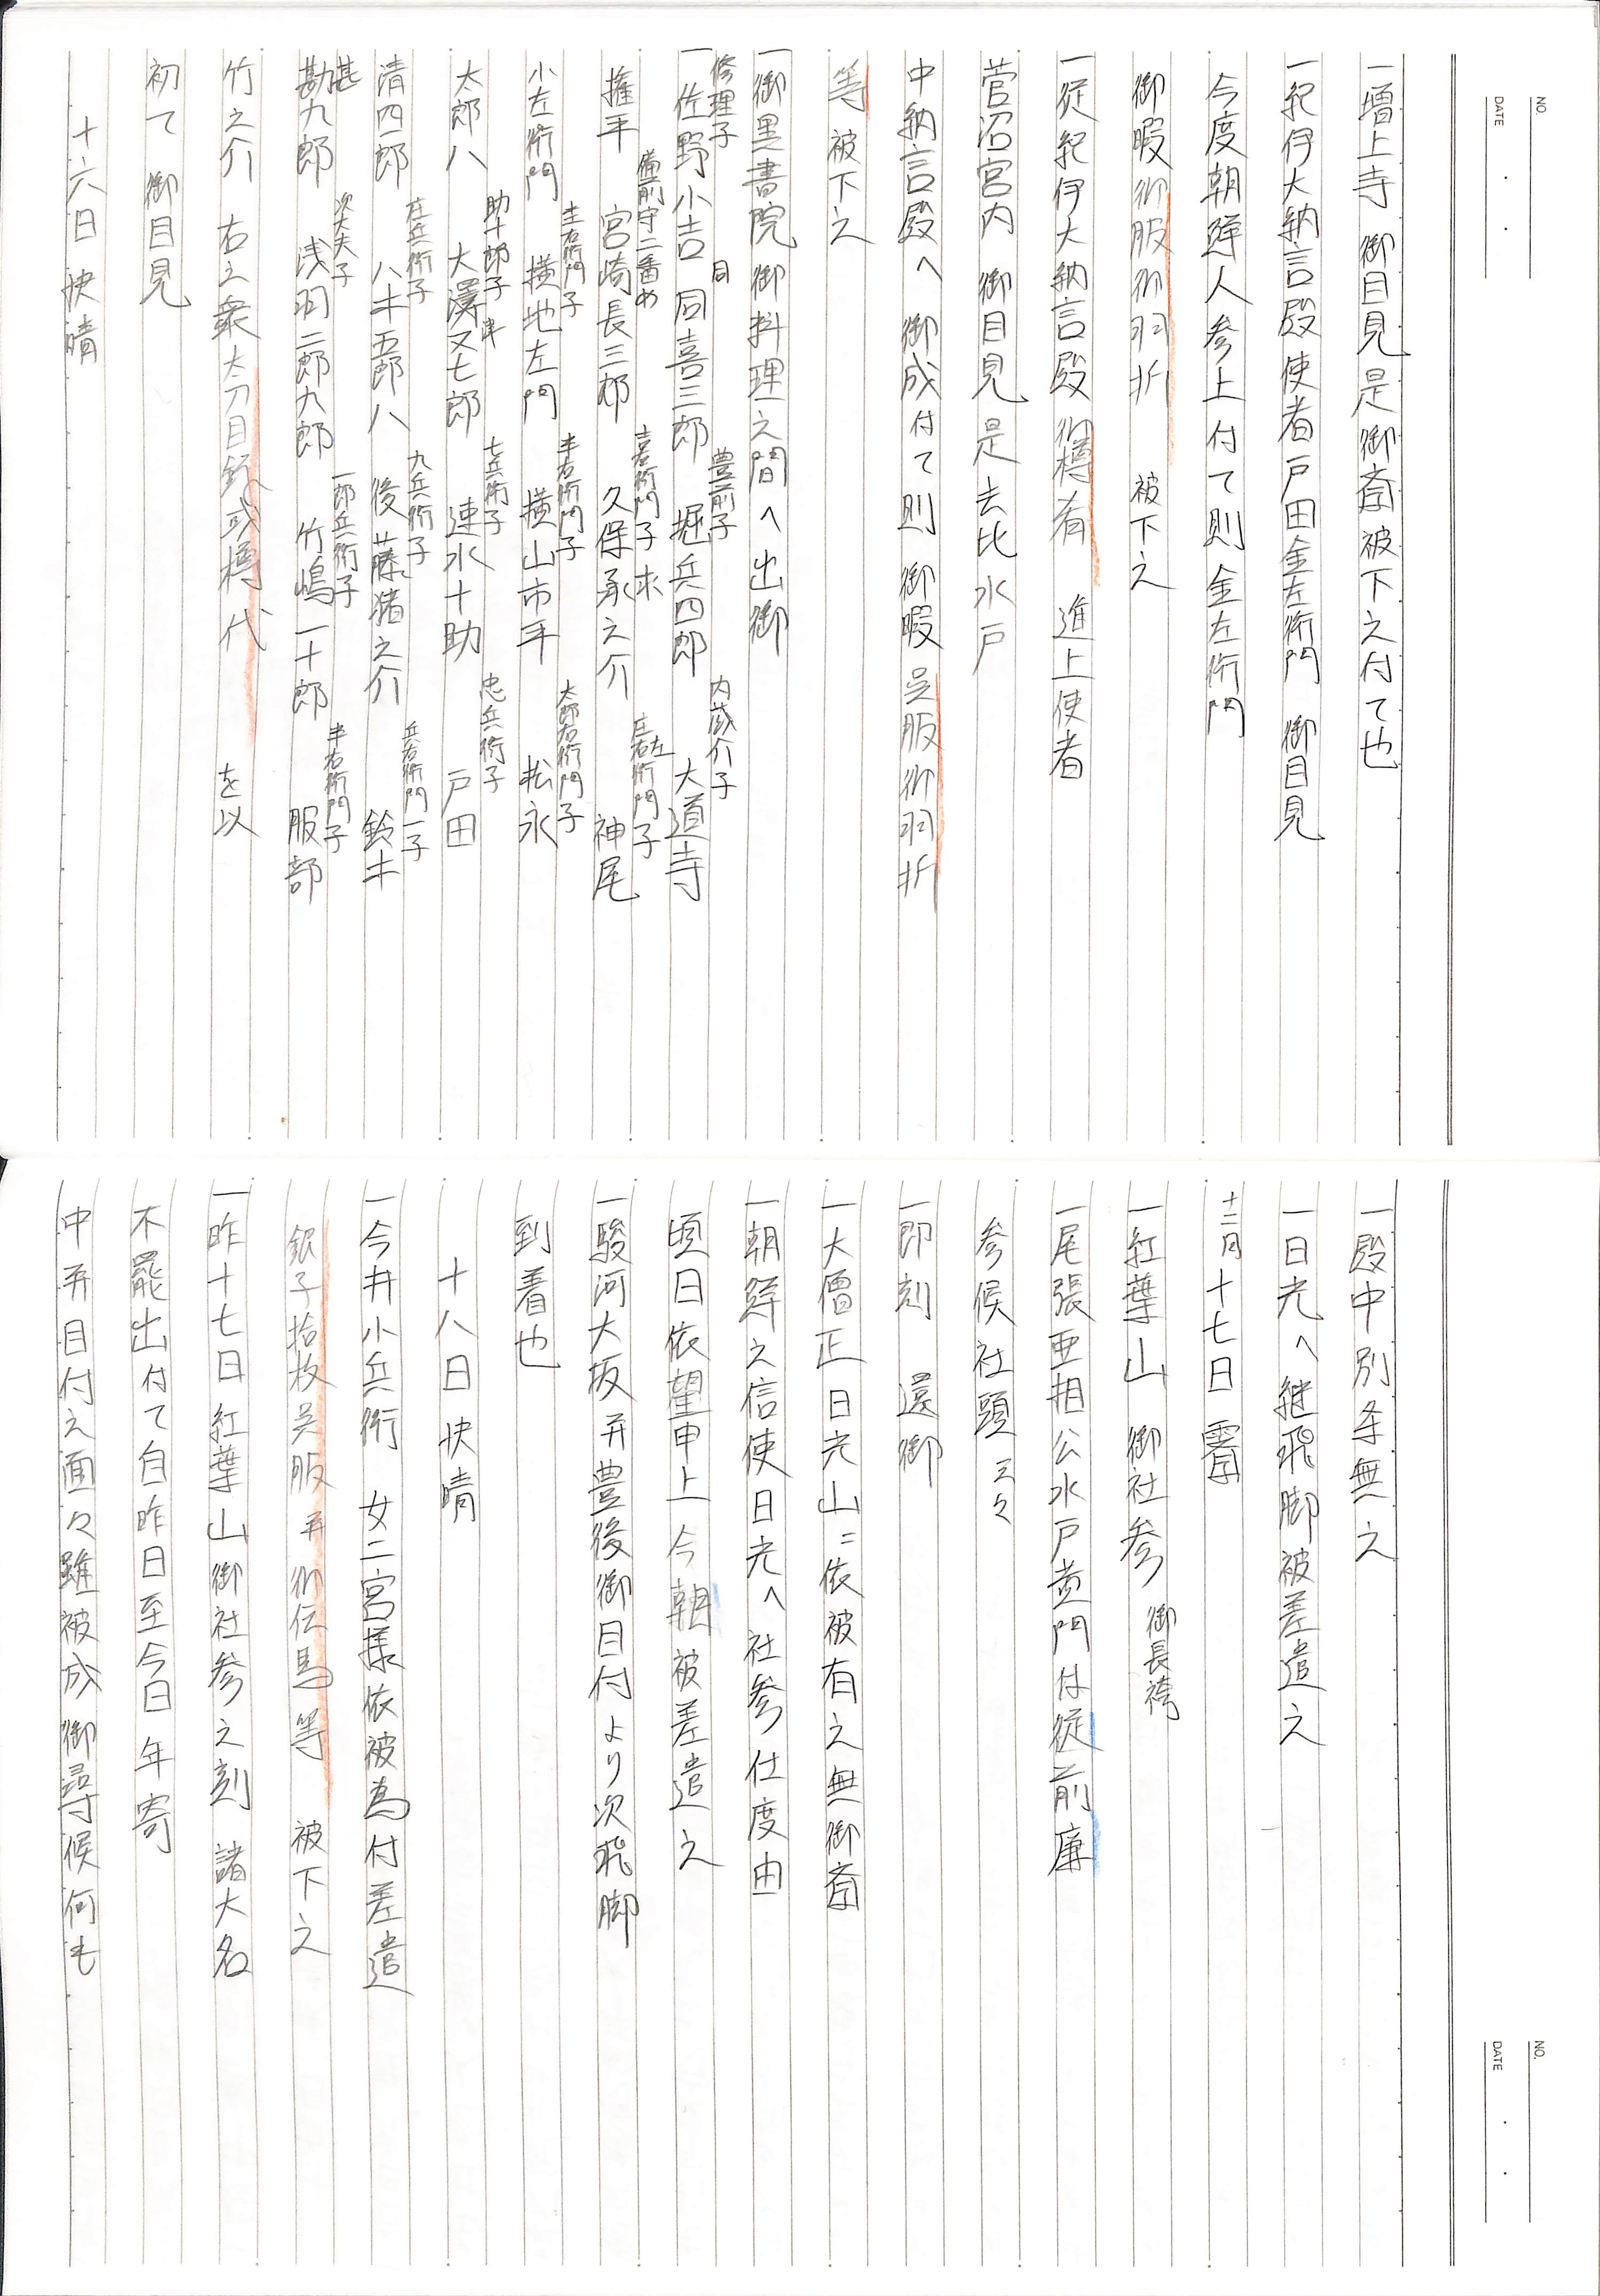 NO.
DATE
一増上寺 御目見是御斎被下之付て也
一紀伊大納言殿使者戸田金左衛門 御目見
今度朝鮮人参上付て則金左衛門
御暇御服御羽折 被下之
一従紀伊大納言殿御樽肴 進上使者
菅沼宮内 御目見是去比水戸
中納言殿へ 御成付て則 御暇呉服御羽折
等被下之
一御黒書院御料理之間へ出御
修理子 同 豊前子 内蔵介子
一佐野小吉 同喜三郎 堀兵四郎 大道寺
備前守二番め 喜左衛門子 求 庄右衛門子 左
権平 宮崎長三郎 久保承之介 神尾
主右衛門子 半右衛門子 太郎右衛門子
小左衛門 横地左門 横山市平 松永
助十郎子 七兵衛子 忠兵衛子
太郎八 大澤又七郎 速水十助 戸田
庄兵衛子 九兵衛子 兵右衛門子
清四郎 八木五郎八 後藤猪之介 鈴木
甚 次大夫子 一郎兵衛子 半右衛門子
勘九郎 浅羽二郎九郎 竹嶋一十郎 服部
竹之介 右之衆太刀目録或樽代 を以
初て御目見
十六日 快晴
NO.
DATE
一殿中別条無之
一日光へ継飛脚被差遣之
十二月十七日 霽
一紅葉山 御社参 御長袴
一尾張亜相公水戸黄門は従前廉
参候社頭云々
一即刻 還御
一大僧正日光山ニ依被有之無御斎
一朝鮮之信使日光へ社参仕度由
頃日依望申上今朝被差遣之
一駿河大坂并豊後御目付より次飛脚
到着也
十八日 快晴
一今井小兵衛 女二宮様依被為付差遣
銀子拾枚呉服并御伝馬等 被下之
一昨十七日紅葉山御社参之刻 諸大名
不罷出付て自昨日至今日年寄
中并目付之面々雖被成御尋候何も